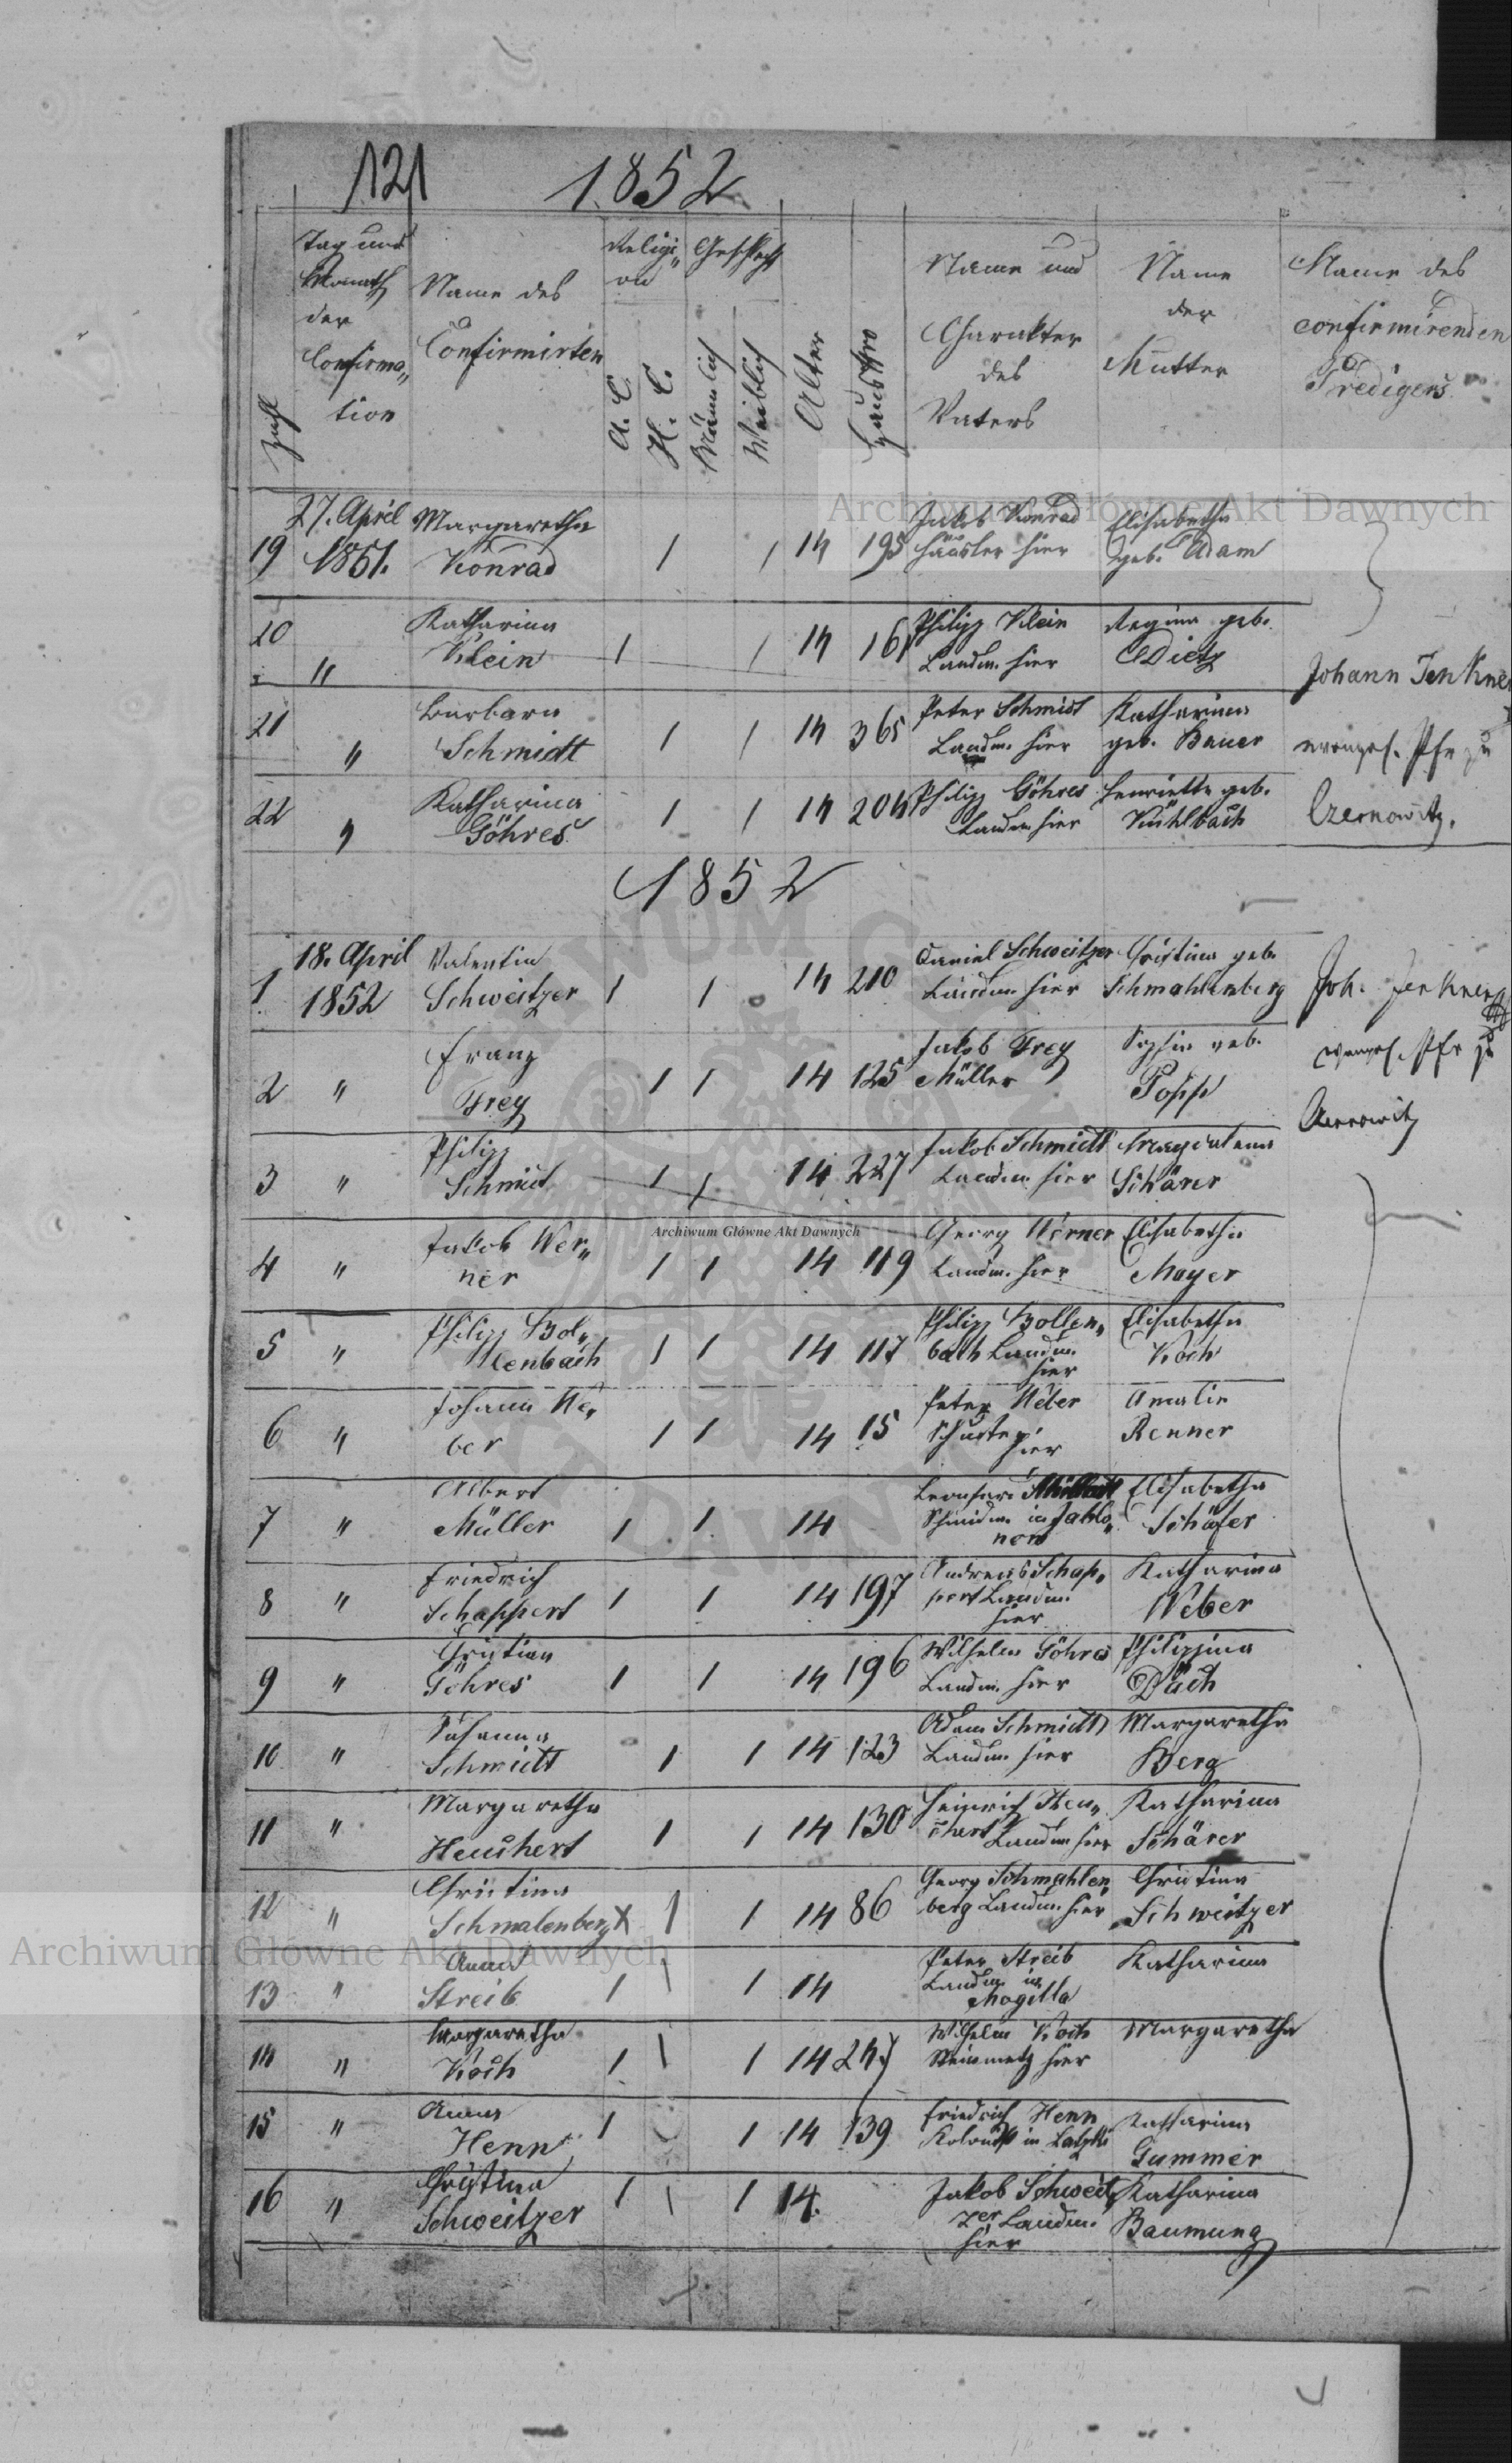 121 1852
Zahl
Tag und
Monath
der
Confirma„
tion
Name des
Confirmirten
Religi„
on
A. C.
H. C.
Geschlecht
Männlich
Weiblich
Alter
Haus Nro
Name und
Charakter
des
Vaters
Name
der
Mutter
Name des
confirmirenden
Predigers
27. April Margaretha Jakob Konrad Elisabetha
19 1851. Konrad 1 1 14 195 hier geb. Adam
20 Katharina Philipp Klein Regina geb.
" Klein 1 1 14 161 Landm. hier Dietz
Johann Jenkner
21 Barbara Peter Schmidt Katharina
" Schmidt 1 1 14 365 Landm. hier geb. Bauer
evangel. Pfr zu
22 Katharina Philipp Göhres Henriette geb.
" Göhres 1 1 14 204 Landm hier Kühlbach
Czernowitz.
1852
18. April Valentin Daniel Schweitzer Christina geb.
1 1852 Schweitzer 1 1 14 210 Landm hier Schmahlenberg
Joh. Jenkner
Franz Jakob Frey Sophia geb.
2 " Frey 1 1 14 125 Müller Popp
evangel. Pfr zu
Czernowitz
Philipp Jakob Schmidt Magdalena
3 " Schmidt 1 1 14 227 Landm hier Schärer
Jakob Wer„ Georg Werner Elisabetha
4 " ner 1 1 14 119 Landm. hier Mayer
Philipp Bol„ Philipp Bollen„ Elisabetha
5 " lenbach 1 1 14 117 bach Landm. Koch
hier
Johann We„ Peter Weber Amalie
6 " ber 1 1 14 15 Schuster Renner
hier
Albert Leonhard Elisabetha
7 " Müller 1 1 14 in Jablo„ Schäfer
now
Friedrich Andreas Schap„ Katharina
8 " Schappert 1 1 14 197 pert Landm. Weber
hier
Christian Wilhelm Göhres Philippina
9 " Göhres 1 1 14 196 Landm. hier Däch
Susanna Adam Schmidt Margaretha
10 " Schmidt 1 1 14 123 Landm. hier Berg
Margaretha Heinrich Heu„ Katharina
11 " Heuchert 1 1 14 130 chert Landm hier Schärer
Christina Georg Schmahlen„ Christina
12 " Schmalenberg X 1 1 14 86 berg Landm. hier Schweitzer
Anna Peter Streib Katharina
13 " Streib 1 1 1 14 Landm. in
Mogilla
Margaretha Wilhelm Koch Margaretha
14 " Koch 1 1 1 14 247 Steinmetz hier
Anna Friedrich Henn Katharina
15 " Henn 1 1 14 139 Kolonist in Gummer
Christina Jakob Schweit„ Katharina
16 " Schweitzer 1 1 1 14. zer Landm. Baumung
hier
Archiwum Główne Akt Dawnych
Archiwum Główne Akt Dawnych
Archiwum Główne Akt Dawnych